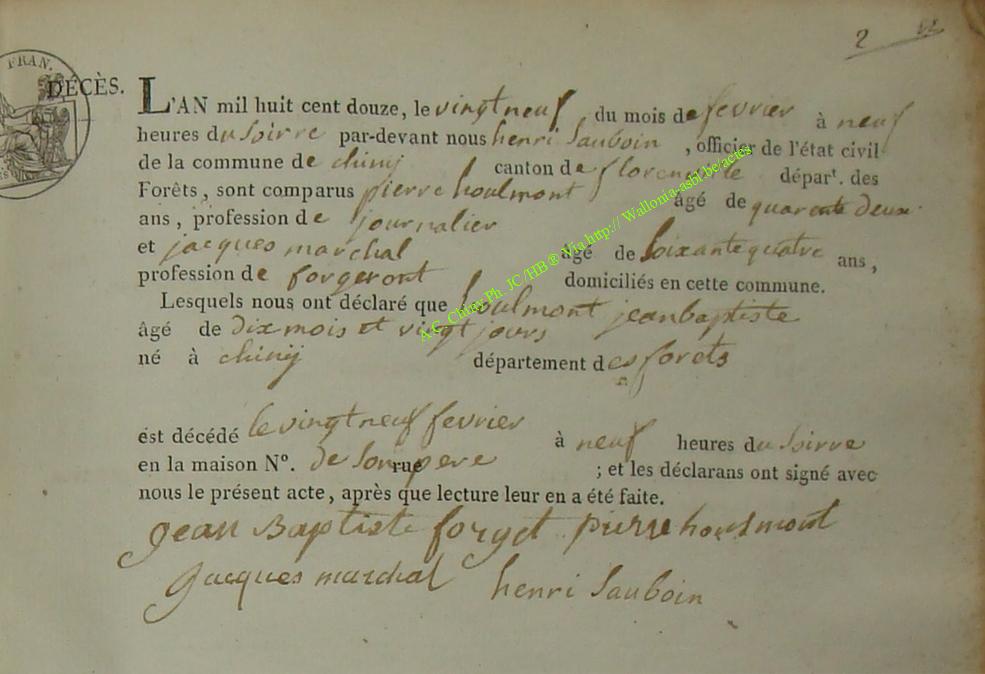 2
FRAN.
DÉCÈS. L'AN mil huit cent douze, le vingt neuf du mois de fevrier à neuf
heures du soirre par-devant nous henri Sauboin , officier de l'état civil
de la commune de chinij canton de florenville départ. des
Forêts, sont comparus pierre houlmont âgé de quarente deux
ans, profession de journalier
et jacques marchal âgé de soixante quatre ans,
profession de forgeront domiciliés en cette commune.
Lesquels nous ont déclaré que houlmont jean baptiste
âgé de dix mois et vingt jours
né à chinij département des forets
est décédé le vingt neuf fevrier à neuf heures du soirre
en la maison N°. de son pere rue ; et les déclarans ont signé avec
nous le présent acte, après que lecture leur en a été faite.
jean Baptiste forget pierre houlmont
jacques marchal henri Sauboin
A.C. Chiny Ph JC/HB ® Via http:// Wallonia-asbl.be/actes